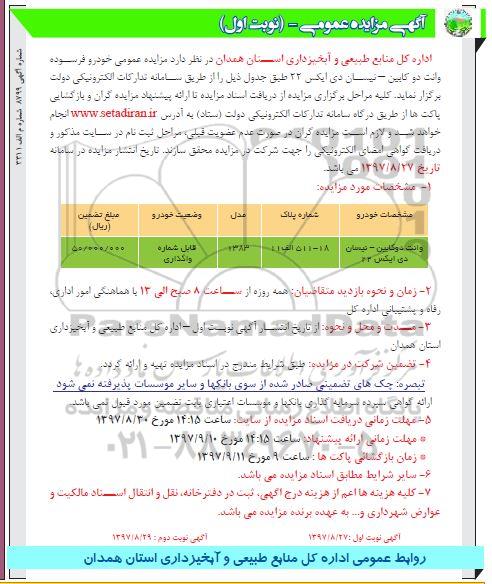 آگهی مزایده عمومی - (نوبت اول)
شماره آگهی ۸۷۹۹ شماره م الف ۳۳۱۱
اداره کل منابع طبیعی و آبخیزداری استان همدان در نظر دارد مزایده عمومی خودرو فرسوده
وانت دو کابین – نیسان دی ایکس ۲۲ طبق جدول ذیل را از طریق سامانه تدارکات الکترونیکی دولت
برگزار نماید. کلیه مراحل برگزاری مزایده از دریافت اسناد مزایده تا ارائه پیشنهاد مزایده گران و بازگشایی
پاکت ها از طریق درگاه سامانه تدارکات الکترونیکی دولت (ستاد) به آدرس www.setadiran.ir انجام
خواهد شد و لازم است مزایده گران در صورت عدم عضویت قبلی، مراحل ثبت نام در سایت مذکور و
دریافت گواهی امضای الکترونیکی را جهت شرکت در مزایده محقق سازند. تاریخ انتشار مزایده در سامانه
تاریخ ۱۳۹۷/۸/۲۷ می باشد.
۱- مشخصات مورد مزایده:
مشخصات خودرو شماره پلاک مدل وضعیت خودرو مبلغ تضمین (ریال)
وانت دوکابین – نیسان دی ایکس ۲۲ ۱۸-۵۱۱ الف ۱۱ ۱۳۸۳ قابل شماره واگذاری ۵۰/۰۰۰/۰۰۰
۲- زمان و نحوه بازدید متقاضیان: همه روزه از ساعت ۸ صبح الی ۱۳ با هماهنگی امور اداری،
رفاه و پشتیبانی اداره کل
۳- مدت و محل و نحوه: از تاریخ انتشار آگهی نوبت اول – اداره کل منابع طبیعی و آبخیزداری
استان همدان
۴- تضمین شرکت در مزایده: طبق شرایط مندرج در اسناد مزایده تهیه و ارائه گردد.
تبصره: چک های تضمینی صادر شده از سوی بانکها و سایر موسسات پذیرفته نمی شود
ارائه گواهی سپرده سرمایه گذاری بانکها و موسسات اعتباری بابت تضمین مورد قبول نمی باشد.
۵- مهلت زمانی دریافت اسناد مزایده از سایت: ساعت ۱۴:۱۵ مورخ ۱۳۹۷/۸/۳۰
* مهلت زمانی ارائه پیشنهاد: ساعت ۱۴:۱۵ مورخ ۱۳۹۷/۹/۱۰
* زمان بازگشائی پاکت ها : ساعت ۹ مورخ ۱۳۹۷/۹/۱۱
۶- سایر شرایط مطابق اسناد مزایده می باشد.
۷- کلیه هزینه ها اعم از هزینه درج آگهی، ثبت در دفترخانه، نقل و انتقال اسناد مالکیت و
عوارض شهرداری و... به عهده برنده مزایده می باشد.
آگهی نوبت اول :۱۳۹۷/۸/۲۷ آگهی نوبت دوم : ۱۳۹۷/۸/۲۹
روابط عمومی اداره کل منابع طبیعی و آبخیزداری استان همدان